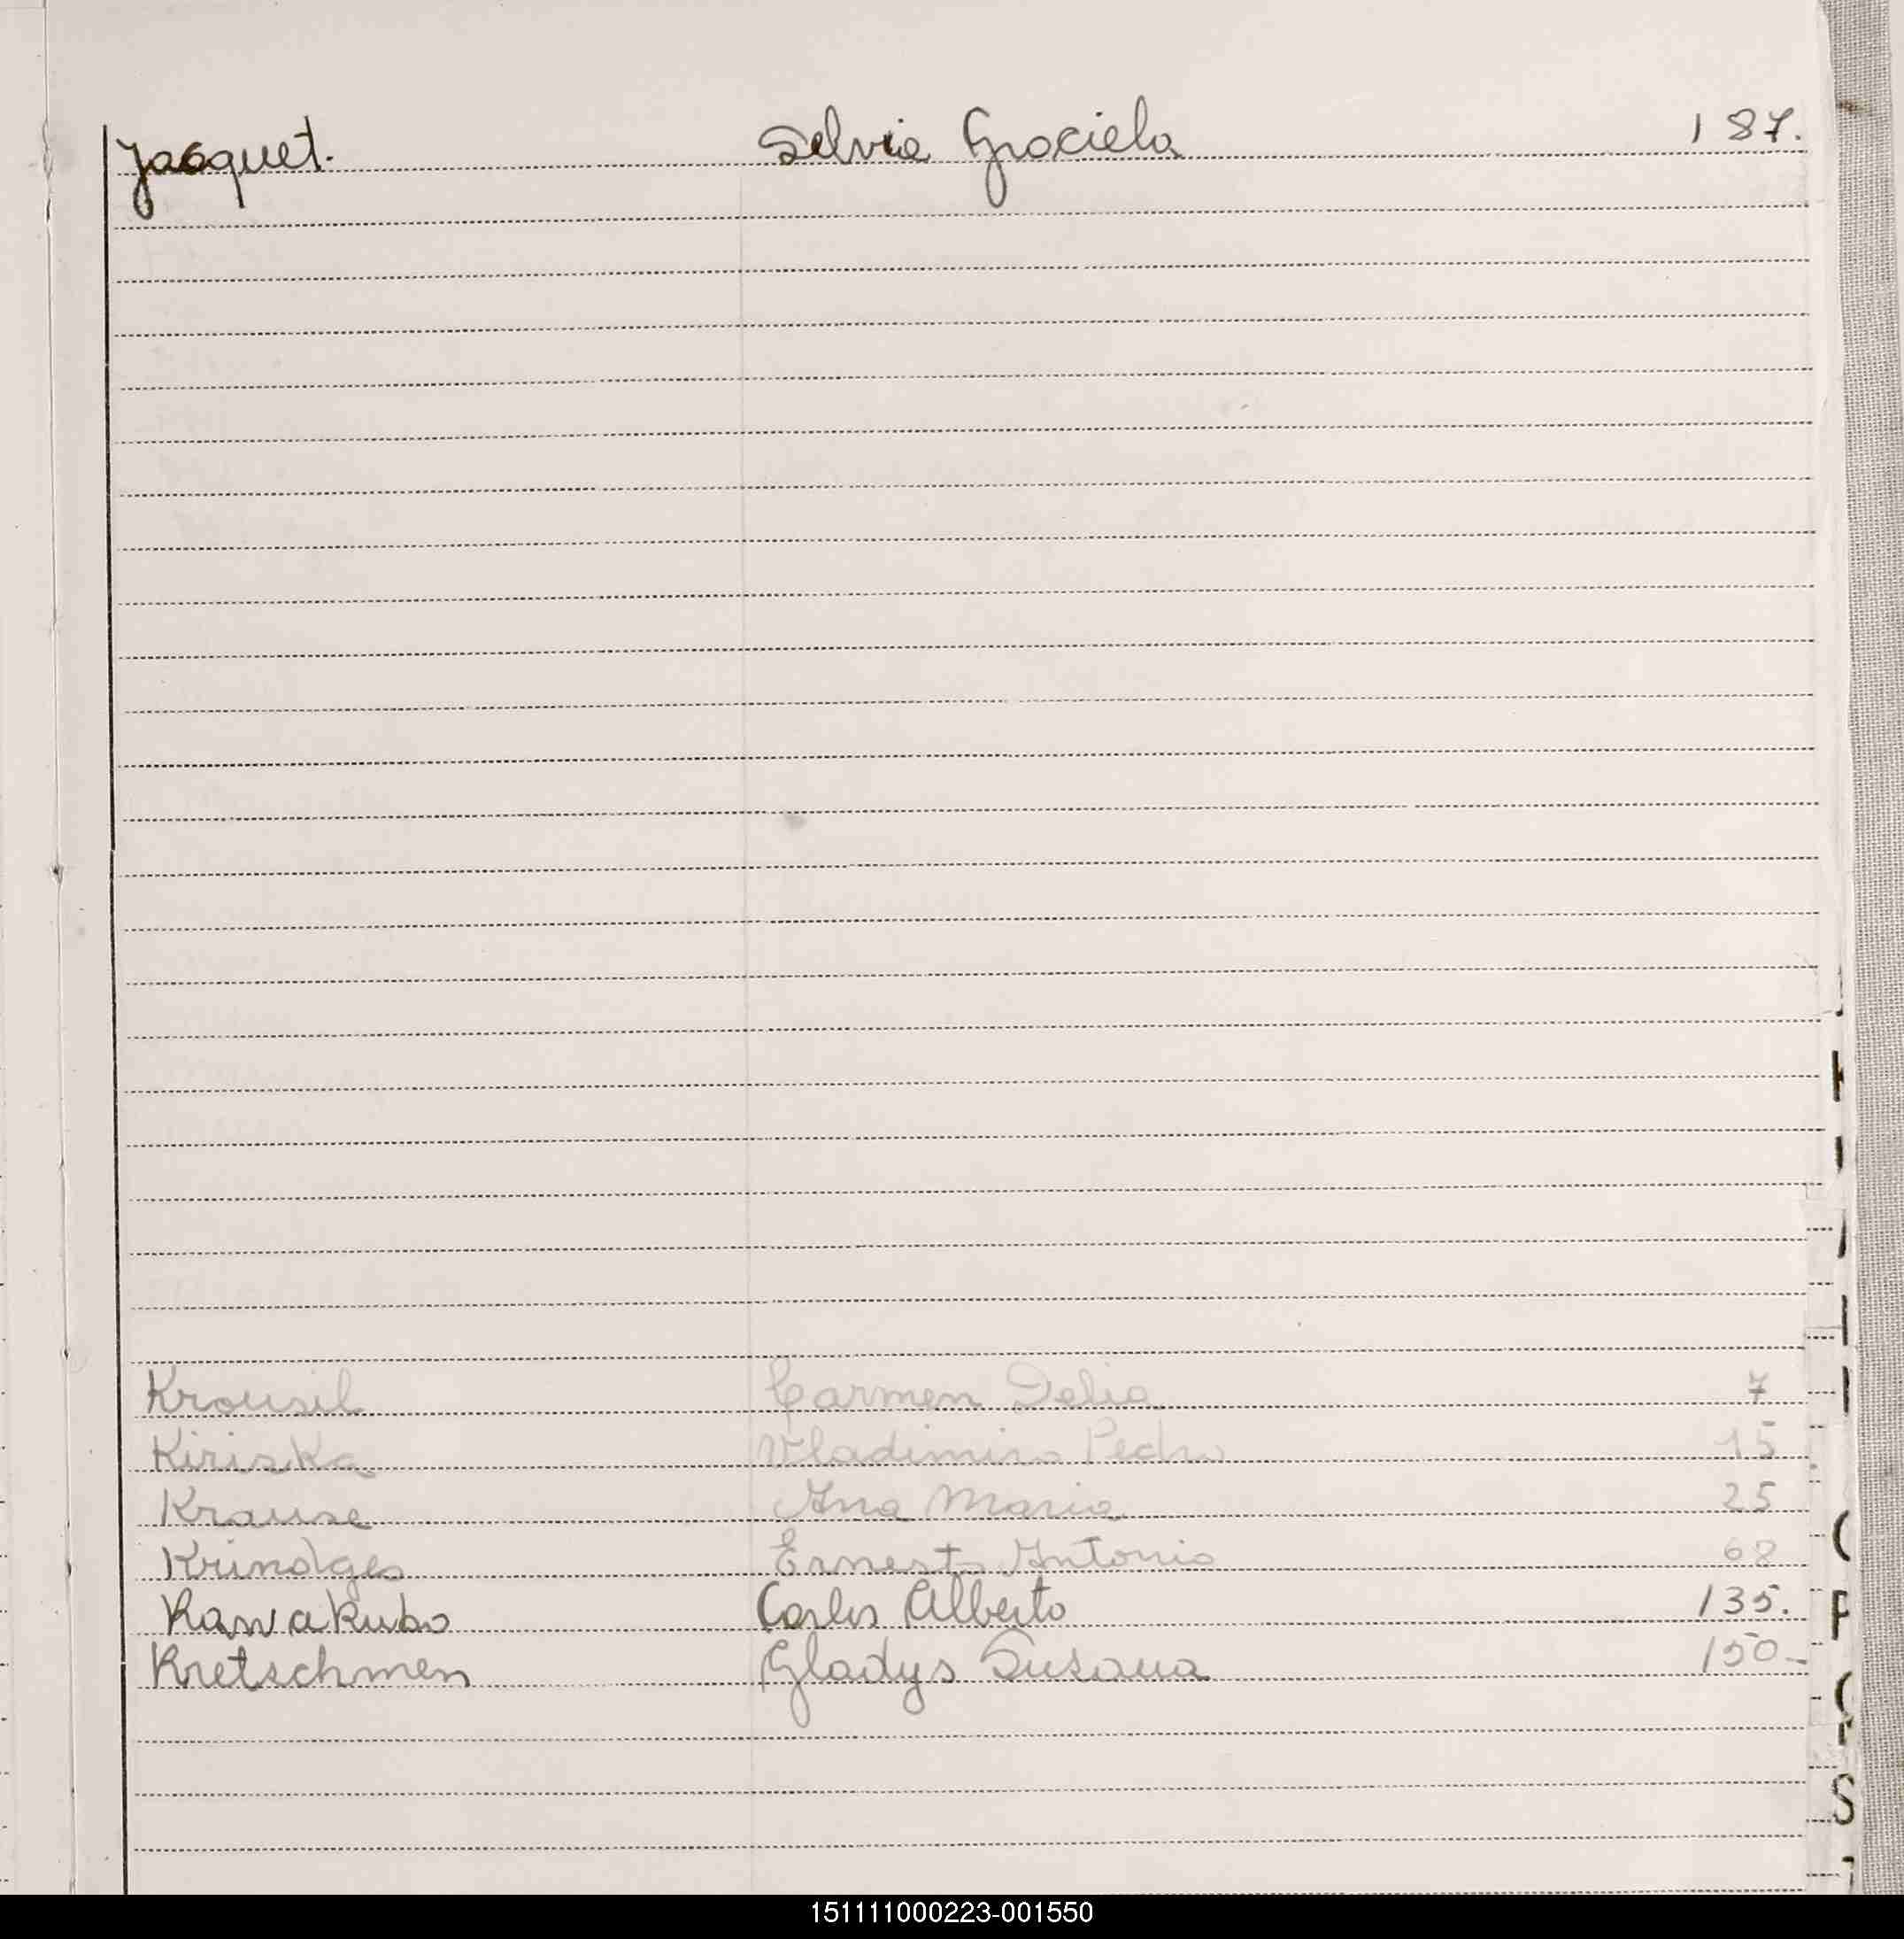 Jacquet. Silvia Graciela 187.
Krousil Carmen Delia 7
Kiriska Vladimiro Pedro 15
Krause Ana Maria 25
Krindges Ernesto Antonio 68
Kawakubo Carlos Alberto 135.
Kretschmen Gladys Susana 150-
151111000223-001550